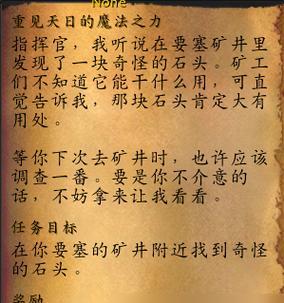 None
重见天日的魔法之力
指挥官，我听说在要塞矿井里
发现了一块奇怪的石头。矿工
们不知道它能干什么用，可直
觉告诉我，那块石头肯定大有
用处。
等你下次去矿井时，也许应该
调查一番。要是你不介意的
话，不妨拿来让我看看。
任务目标
在你要塞的矿井附近找到奇怪
的石头。
奖励